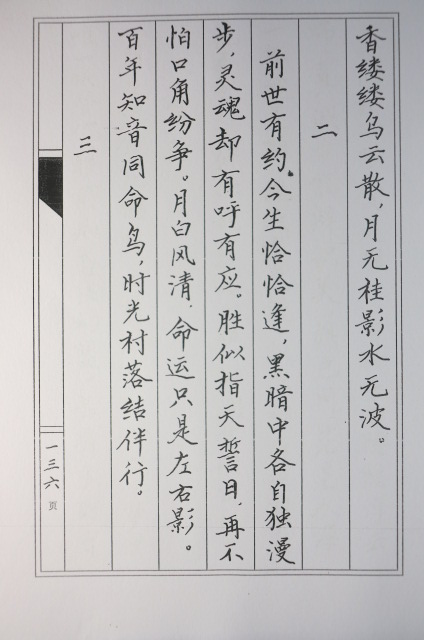 香缕缕乌云散，月无桂影水无波。
二
前世有约今生恰恰逢，黑暗中各自独漫
步，灵魂却有呼有应。胜似指天誓日，再不
怕口角纷争。月白风清，命运只是左右影。
百年知音同命鸟，时光村落结伴行。
三
一三六页